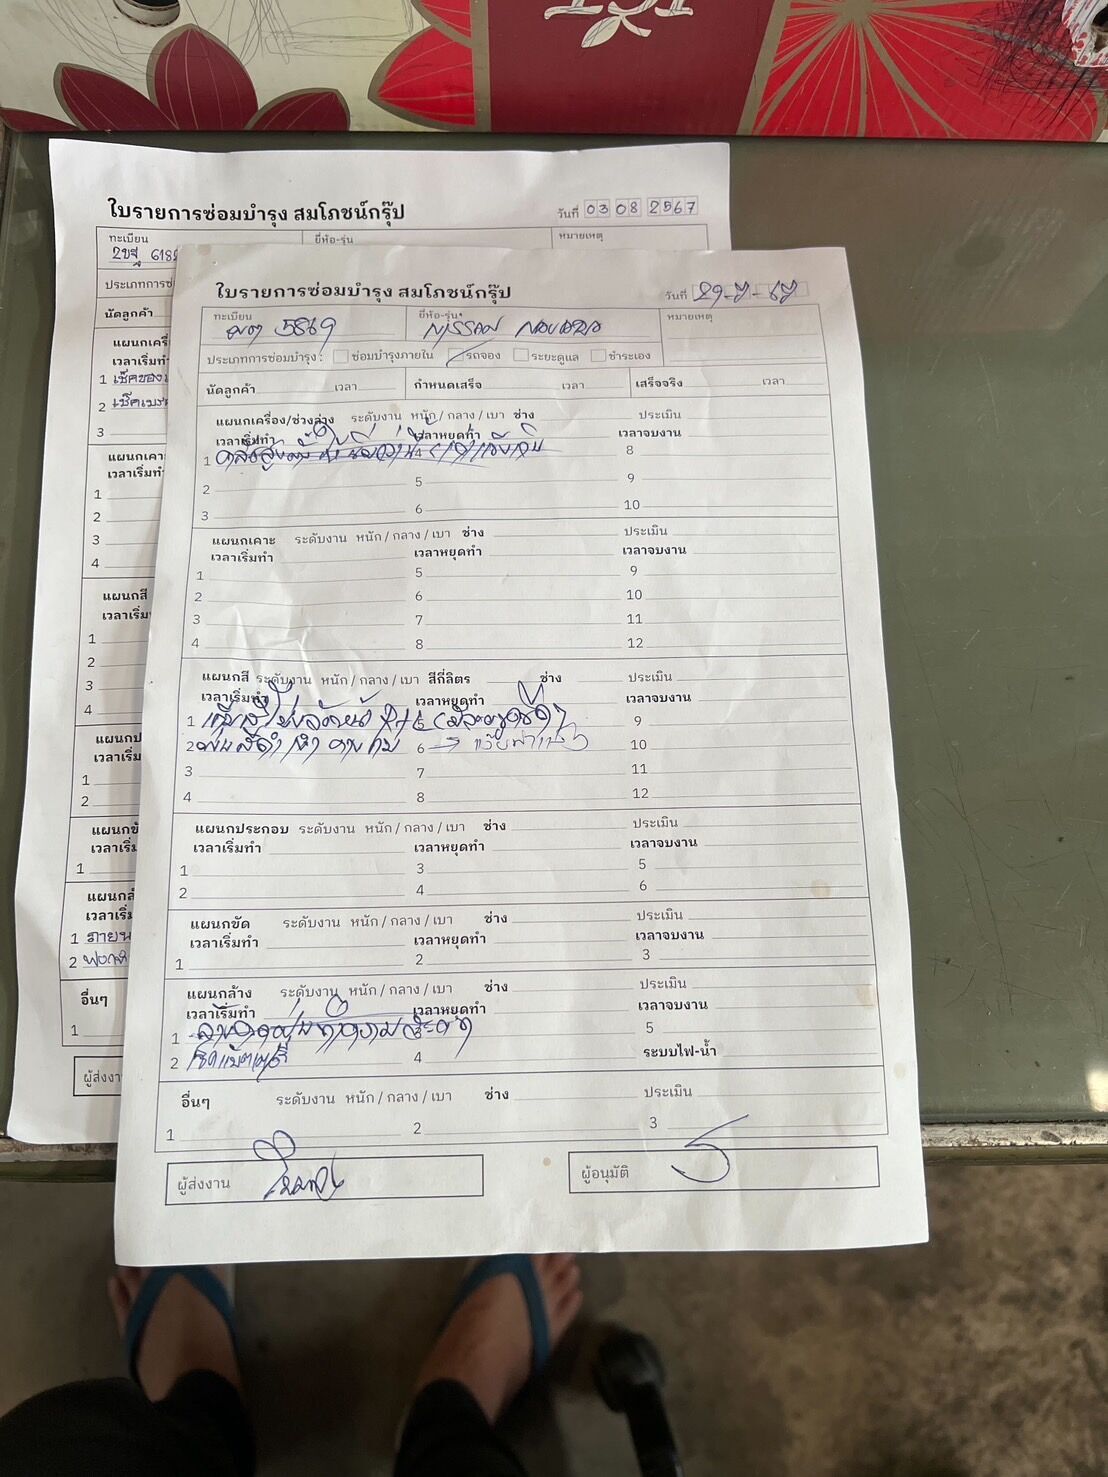 ใบรายการซ่อมบำรุง สมโภชน์กรุ๊ป
วันที่ 03 08 2567
ทะเบียน ยี่ห้อ-รุ่น หมายเหตุ
2ขฐ 618
ประเภทการซ่
นัดลูกค้า
แผนกเครื่
เวลาเริ่มทำ
1 เช็คของเ
2 เช็คเบรค
3
แผนกเคาะ
เวลาเริ่มทำ
1
2
3
4
แผนกสี
เวลาเริ่ม
1
2
3
4
แผนกป
เวลาเริ่ม
1
2
แผนกขั
เวลาเริ่ม
1
แผนกล้
เวลาเริ่
1 ภายน
2
อื่นๆ
1
ผู้ส่งงา
ใบรายการซ่อมบำรุง สมโภชน์กรุ๊ป
วันที่ 29-7-67
ทะเบียน 5869 ยี่ห้อ-รุ่น NISSAN หมายเหตุ
ประเภทการซ่อมบำรุง : ซ่อมบำรุงภายใน รถจอง ระยะดูแล ชำระเอง
นัดลูกค้า เวลา กำหนดเสร็จ เวลา เสร็จจริง เวลา
แผนกเครื่อง/ช่วงล่าง ระดับงาน หนัก / กลาง / เบา ช่าง ประเมิน
เวลาเริ่มทำ เวลาหยุดทำ เวลาจบงาน
1 4 8
2 5 9
3 6 10
แผนกเคาะ ระดับงาน หนัก / กลาง / เบา ช่าง ประเมิน
เวลาเริ่มทำ เวลาหยุดทำ เวลาจบงาน
1 5 9
2 6 10
3 7 11
4 8 12
แผนกสี ระดับงาน หนัก / กลาง / เบา สีกี่ลิตร ช่าง ประเมิน
เวลาเริ่มทำ เวลาหยุดทำ เวลาจบงาน
1 9
2 พ่นสีดำ 6 10
3 7 11
4 8 12
แผนกประกอบ ระดับงาน หนัก / กลาง / เบา ช่าง ประเมิน
เวลาเริ่มทำ เวลาหยุดทำ เวลาจบงาน
1 3 5
2 4 6
แผนกขัด ระดับงาน หนัก / กลาง / เบา ช่าง ประเมิน
เวลาเริ่มทำ เวลาหยุดทำ เวลาจบงาน
1 2 3
แผนกล้าง ระดับงาน หนัก / กลาง / เบา ช่าง ประเมิน
เวลาเริ่มทำ เวลาหยุดทำ เวลาจบงาน
1 ล้างดูดฝุ่นทำความสะอาด 5
2 เช็ดแบตเตอรี่ 4 ระบบไฟ-น้ำ
อื่นๆ ระดับงาน หนัก / กลาง / เบา ช่าง ประเมิน
1 2 3
ผู้ส่งงาน ผู้อนุมัติ